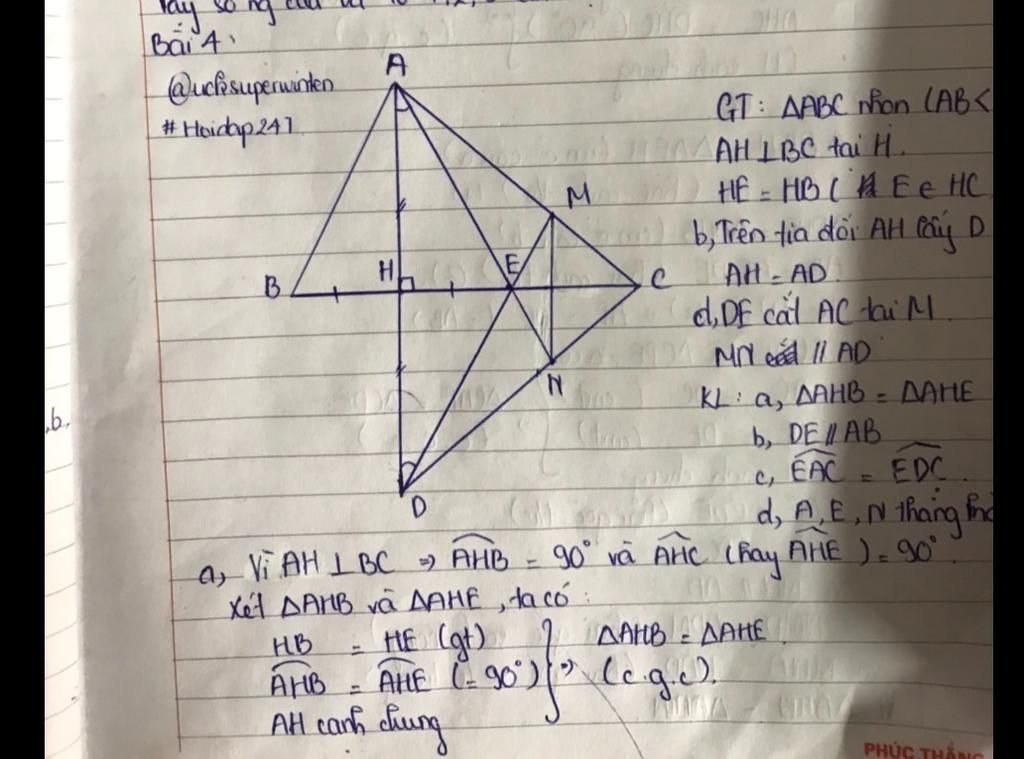 Bài 4:
@uchsuperwinten
#Hoidap247
A
M
B
H
E
C
N
D
GT: ΔABC nhọn (AB<
AH⊥BC tại H.
HE = HB ( E ∈ HC
b, Trên tia đối AH lấy D
AH = AD
d, DE cắt AC tại M.
MN // AD
KL: a, ΔAHB = ΔAHE
b, DE // AB
c, EAC = EDC.
d, A, E, N thẳng
,b.
a, Vì AH⊥BC => AHB = 90° và AHC (hay AHE) = 90°.
Xét ΔAHB và ΔAHE, ta có:
HB = HE (gt) } ΔAHB = ΔAHE.
AHB = AHE (=90°) } => (c.g.c).
AH cạnh chung
PHÚC THẮNG